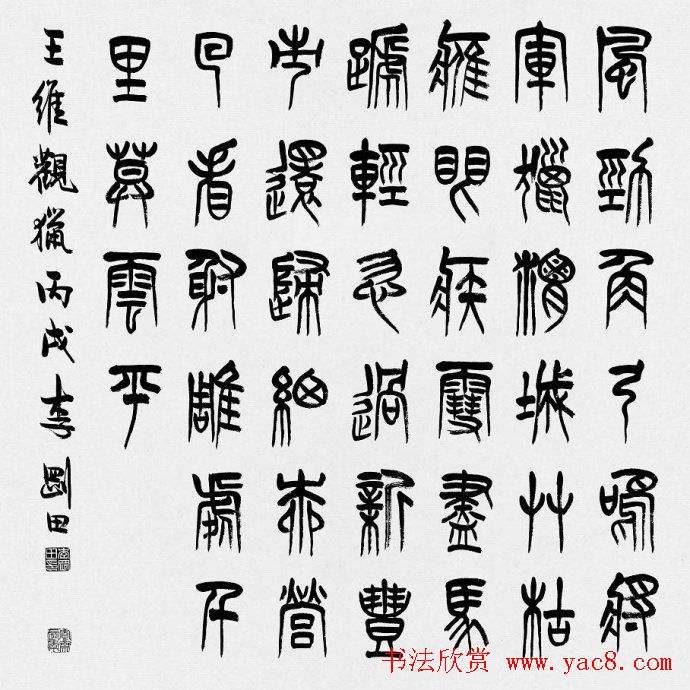 風勁角弓鳴將
軍獵渭城艸枯
鷹眼疾雪盡馬
蹏輕忽過新豐
市還歸細柳營
回看射雕處千
里莫雲平
王維觀獵丙戌李剛田
书法欣赏 www.yac8.com